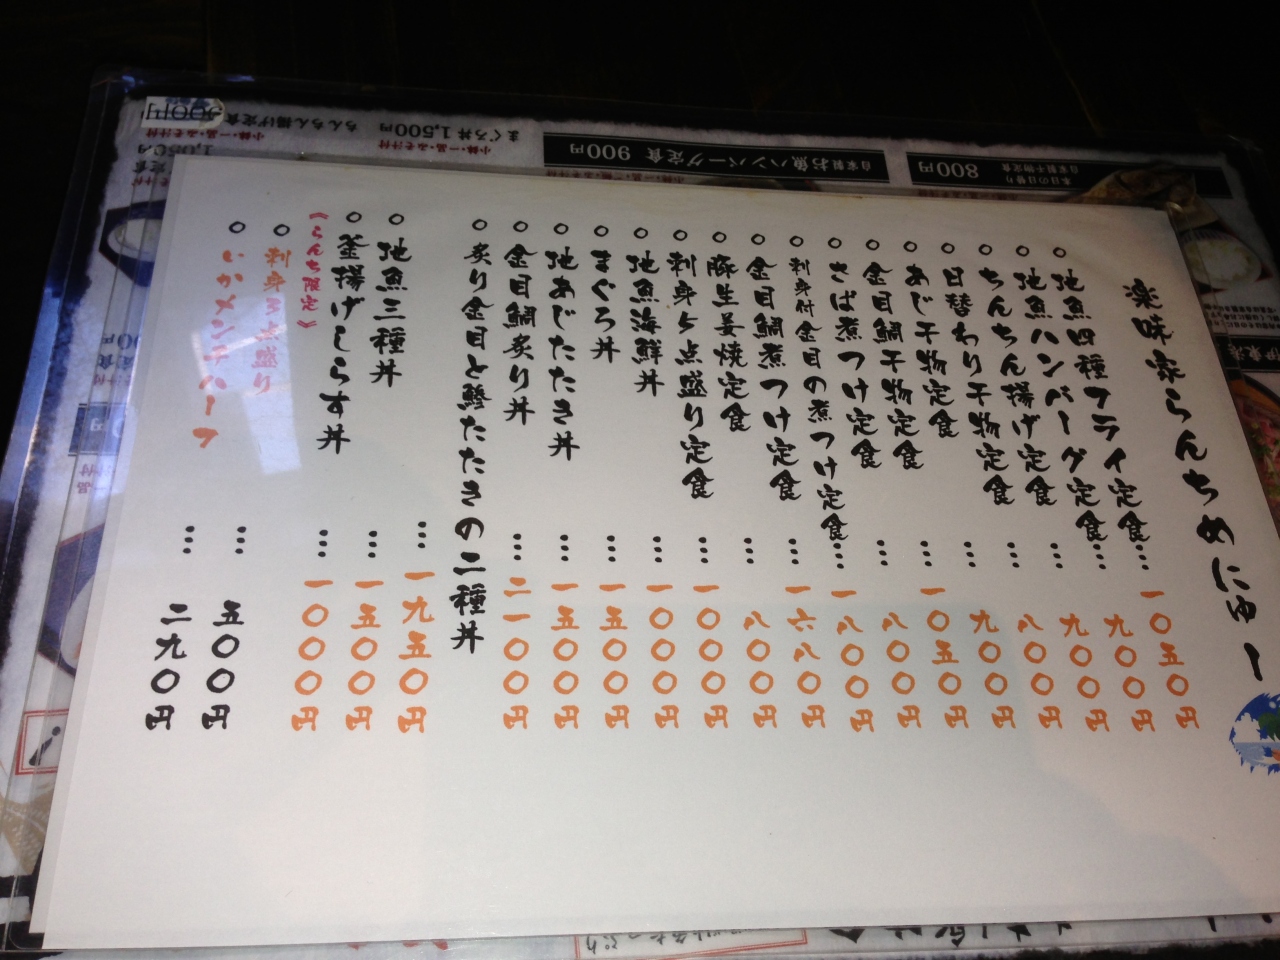 楽味家らんちめにゅー
○地魚四種フライ定食…一〇五〇円
○地魚ハンバーグ定食…九〇〇円
○ちんちん揚げ定食…九〇〇円
○日替わり干物定食…八〇〇円
○あじ干物定食…九〇〇円
○金目鯛干物定食…一〇五〇円
○さば煮つけ定食…八〇〇円
○刺身付金目の煮つけ定食…一八〇〇円
○金目鯛煮つけ定食…一六八〇円
○豚生姜焼定食…八〇〇円
○刺身5点盛り定食…一〇〇〇円
○地魚海鮮丼…一〇〇〇円
○まぐろ丼…一五〇〇円
○地あじたたき丼…一五〇〇円
○金目鯛炙り丼…二一〇〇円
○炙り金目と鯵たたきの二種丼…一九五〇円
○地魚三種丼…一五〇〇円
○釜揚げしらす丼…一〇〇〇円
《らんち限定》
○刺身3点盛り…五〇〇円
○いかメンチハーフ…二九〇円
本日の日替り
自家製干物定食 800円
自家製お魚ハンバーグ定食 900円
まぐろ丼 1,500円
小鉢・一品・みそ汁付
ちんちん揚げ定食 900円
小鉢・一品・みそ汁付